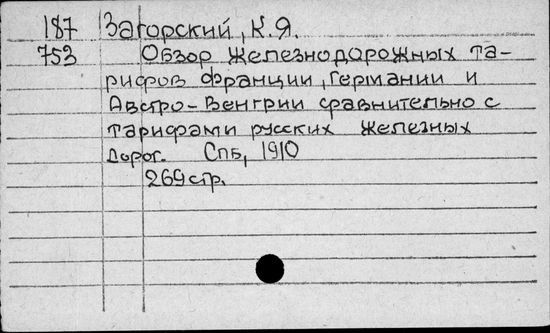 187 Загорский, К.Я.
753 Обзор железнодорожных та-
рифов Франции, Германии и
Австро-Венгрии сравнительно с
тарифами русских железных
дорог. СПБ, 1910
269 стр.